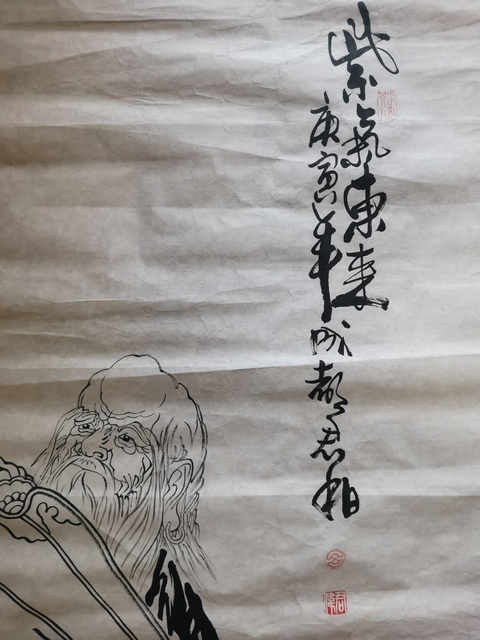 紫氣東来
庚寅年成都君